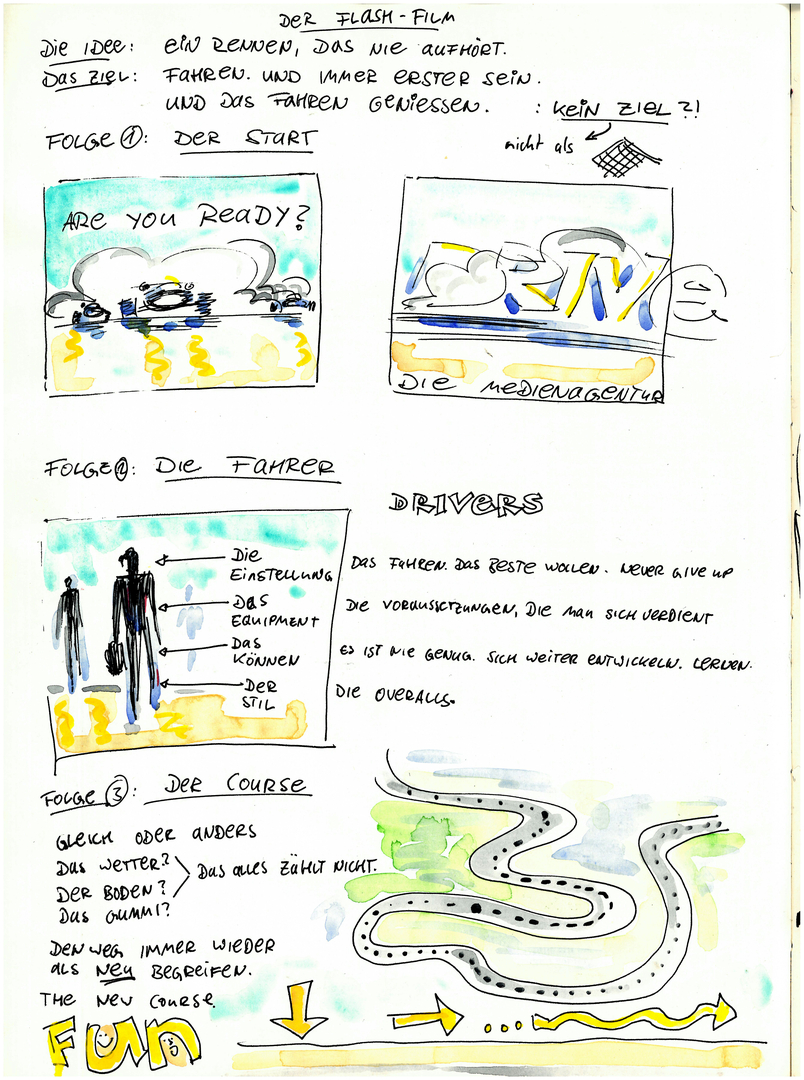 DER FLASH-FILM
Die IDee: eiN RENNEN, DAS Nie AUFHÖRT.
Das ZIEL: FAHREN. UND IMMER ERSTER SEIN.
UND DAS FAHREN GENIESSEN. : KEIN ZIEL?!
nicht als
FOLGE ①: DER START
ARE YOU READY?
DIE MEDIENAGENTUR
FOLGE ②: DIE FAHRER
DRIVERS
Die EINSTELLUNG
DAS EQUIPMENT
Das KÖNNEN
DER STIL
DAS FAHREN. DAS BESTE WOLLEN. NEVER GIVE UP
DIE VORAUSSETZUNGEN, DIE MAN SICH VERDIENT
ES IST NIE GENUG. SICH WEITER ENTWICKELN. LERNEN.
DIE OVERALLS.
FOLGE ③: DER COURSE
GLEICH ODER ANDERS
Das WETTER?
DER BODEN?
Das GUMMI?
Das alles ZÄHLT NICHT.
DEN WEG IMMER WIEDER
als NEU BEGREIFEN.
THE NEW COURSE
Fun